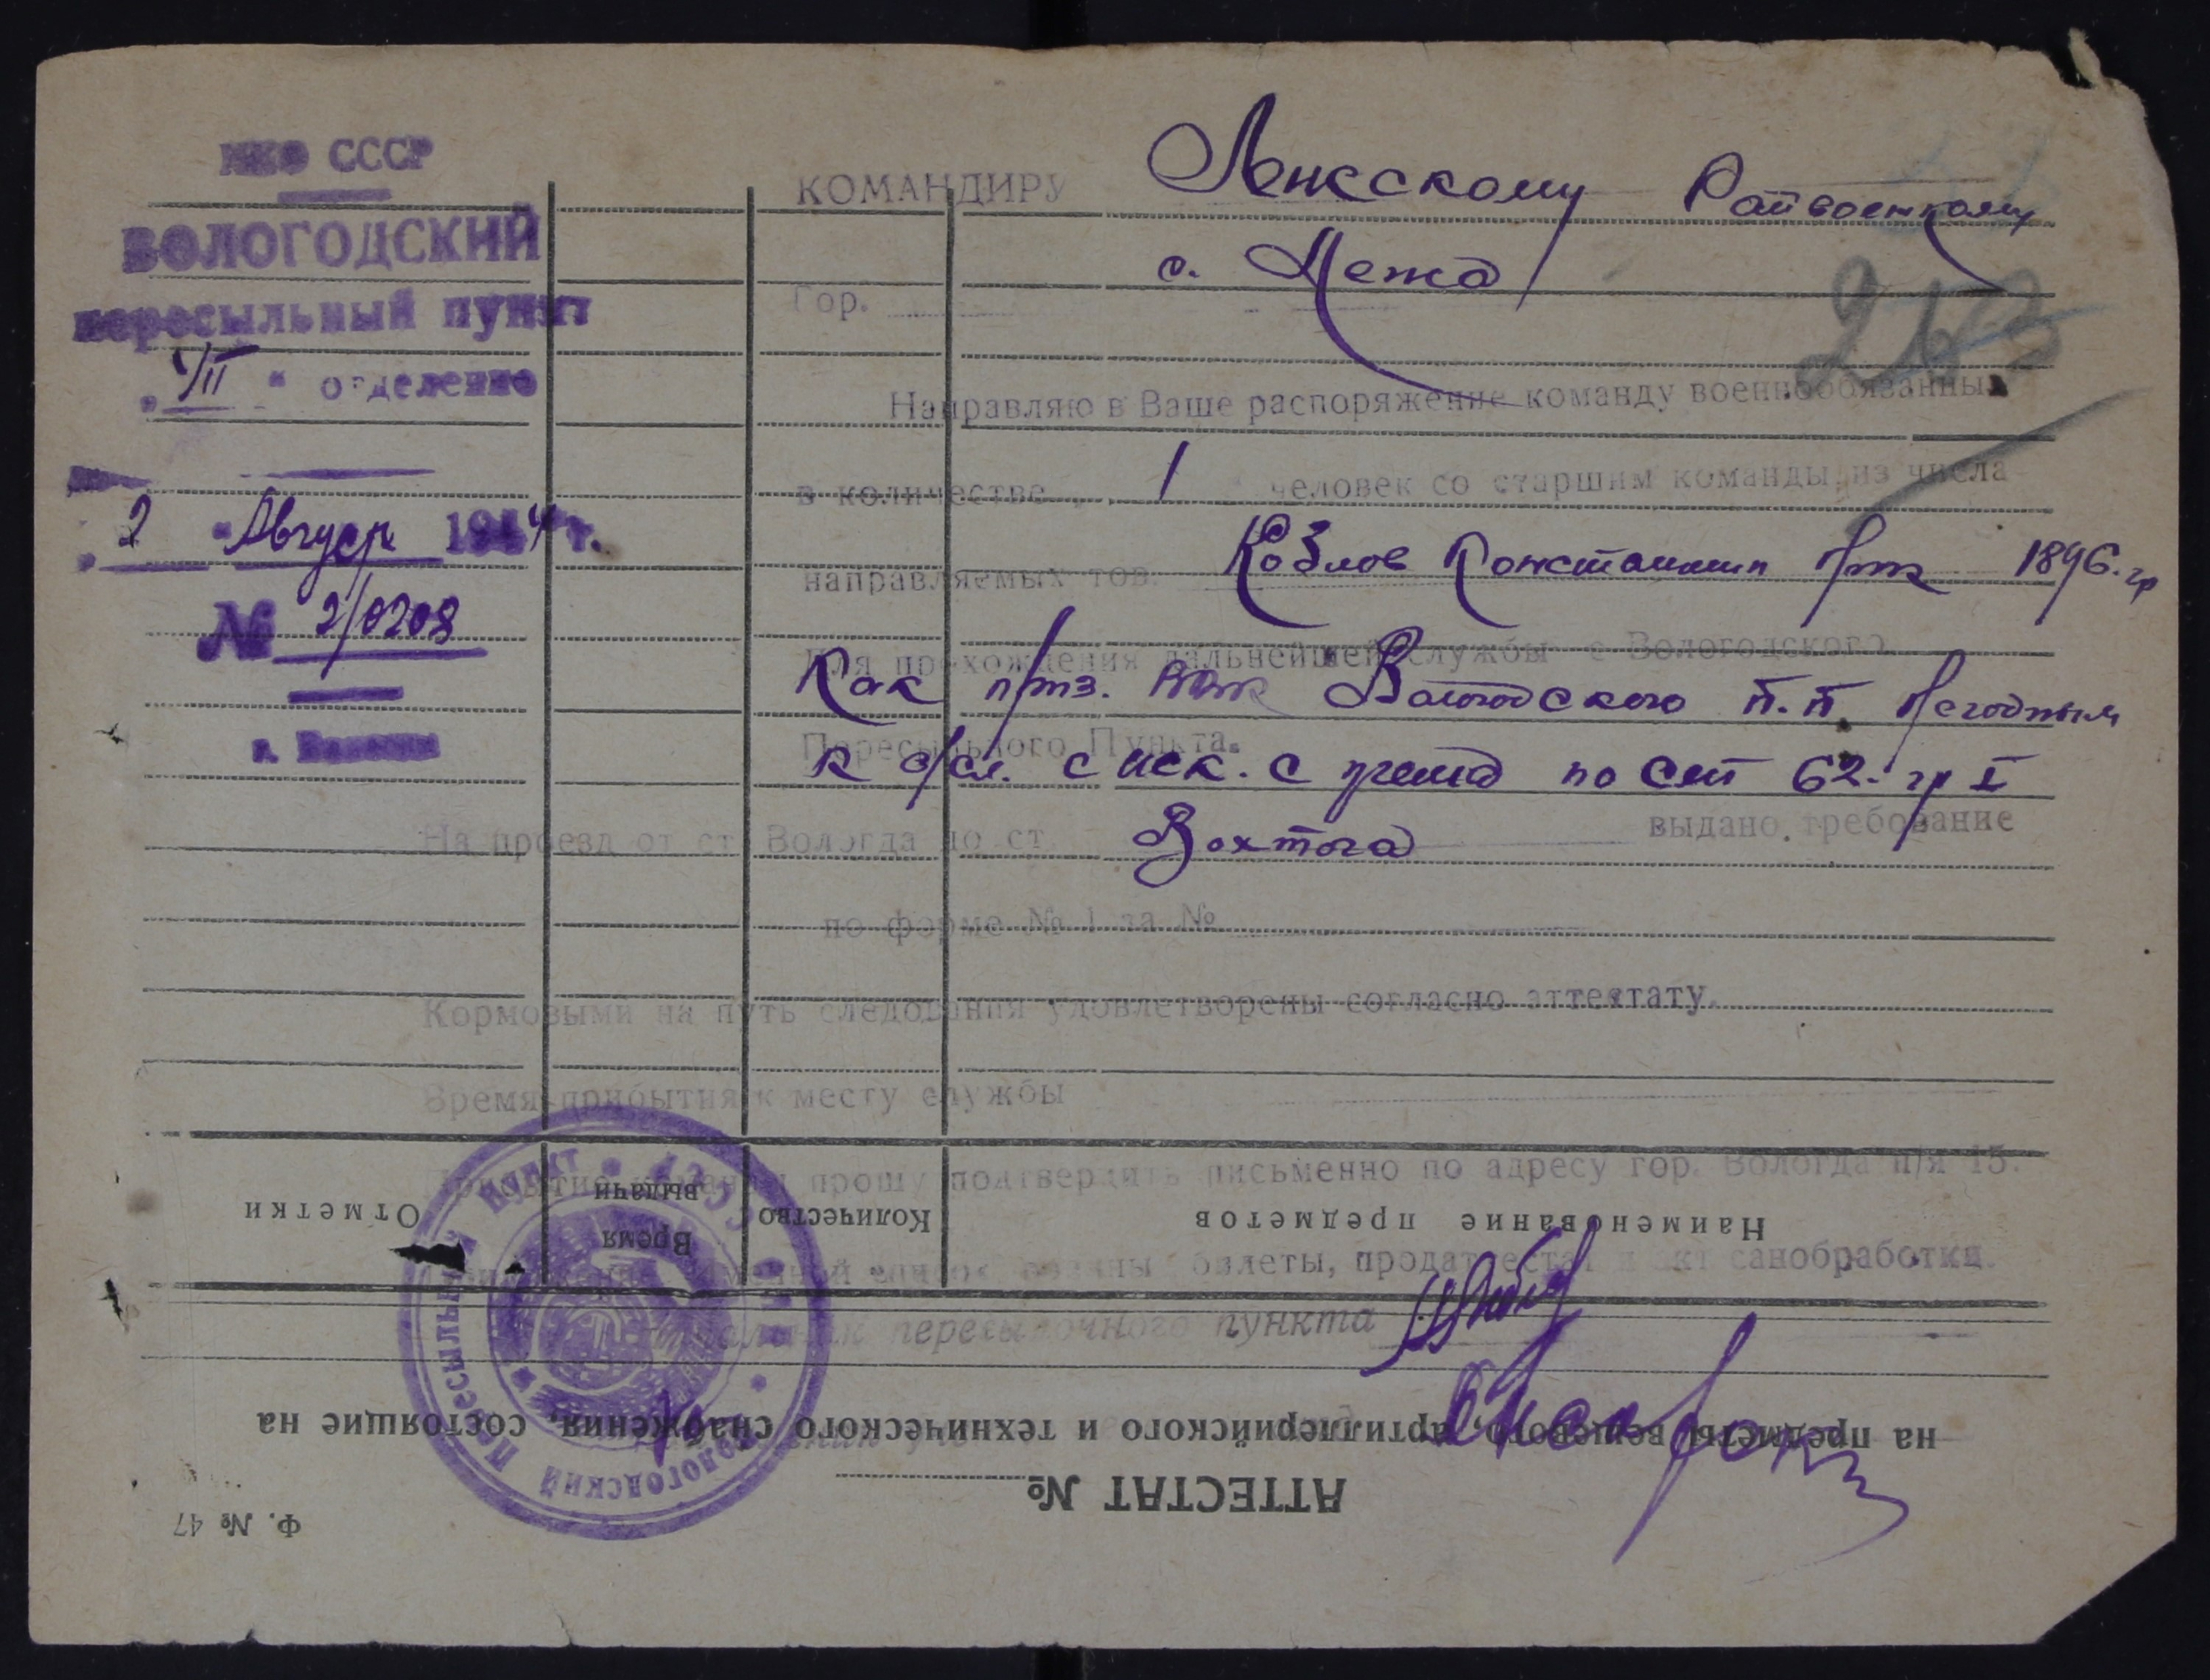 НКО СССР
ВОЛОГОДСКИЙ
пересыльный пункт
"VII" отделение
2 "Август 1944 г.
№ 2/0208
г. Вологда
КОМАНДИРУ Лежскому Райвоенкому
Гор. с. Лежа
Направляю в Ваше распоряжение команду военнообязанных
в количестве 1 человек со старшим команды из числа
направляемых тов. Козлов Константин 1896. гр
Для прохождения дальнейшей службы с Вологодского
Как Вологодского п.п. Негодным
Пересыльного Пункта.
к в/сл. с иск. с учета по ст 62. гр I
На проезд от ст. Вологда до ст. Вохтога выдано требование
по форме № 1 за №
Кормовыми на путь следования удовлетворены согласно аттестату.
Время прибытия к месту службы
Прибытие команды прошу подтвердить письменно по адресу гор. Вологда п/я 15.
билеты, продаттестат санобработки.
Начальник пересылочного пункта
Вологодский Пересыльный Пункт * НКО СССР *
Ф. № 47
АТТЕСТАТ №
на предметы вещевого, артиллерийского и технического снабжения, состоящие на
Наименование предметов
Количество
Время выдачи
Отметки